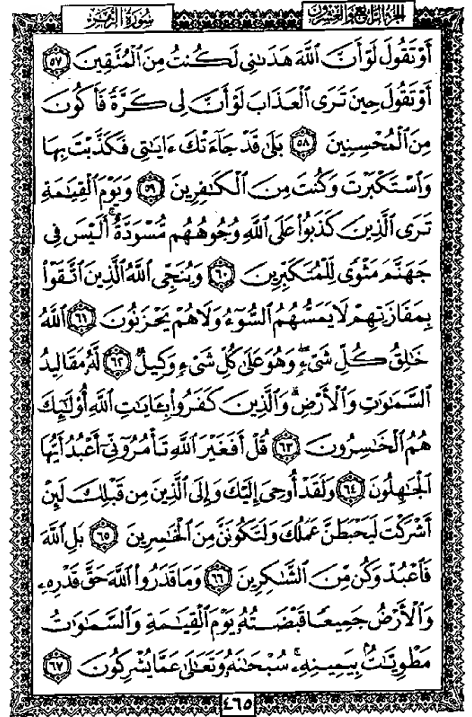 الجزء الرابع والعشرون سورة الزمر
أَوْ تَقُولَ لَوْ أَنَّ اللَّهَ هَدَىٰنِى لَكُنتُ مِنَ الْمُتَّقِينَ ٥٧
أَوْ تَقُولَ حِينَ تَرَى الْعَذَابَ لَوْ أَنَّ لِى كَرَّةً فَأَكُونَ
مِنَ الْمُحْسِنِينَ ٥٨ بَلَىٰ قَدْ جَآءَتْكَ ءَايَٰتِى فَكَذَّبْتَ بِهَا
وَاسْتَكْبَرْتَ وَكُنتَ مِنَ الْكَٰفِرِينَ ٥٩ وَيَوْمَ الْقِيَٰمَةِ
تَرَى الَّذِينَ كَذَبُوا۟ عَلَى اللَّهِ وُجُوهُهُم مُّسْوَدَّةٌ ۚ أَلَيْسَ فِى
جَهَنَّمَ مَثْوًى لِّلْمُتَكَبِّرِينَ ٦٠ وَيُنَجِّى اللَّهُ الَّذِينَ اتَّقَوْا۟
بِمَفَازَتِهِمْ لَا يَمَسُّهُمُ السُّوٓءُ وَلَا هُمْ يَحْزَنُونَ ٦١ اللَّهُ
خَٰلِقُ كُلِّ شَىْءٍ ۖ وَهُوَ عَلَىٰ كُلِّ شَىْءٍ وَكِيلٌ ٦٢ لَّهُۥ مَقَالِيدُ
السَّمَٰوَٰتِ وَالْأَرْضِ ۗ وَالَّذِينَ كَفَرُوا۟ بِـَٔايَٰتِ اللَّهِ أُو۟لَٰٓئِكَ
هُمُ الْخَٰسِرُونَ ٦٣ قُلْ أَفَغَيْرَ اللَّهِ تَأْمُرُوٓنِّىٓ أَعْبُدُ أَيُّهَا
الْجَٰهِلُونَ ٦٤ وَلَقَدْ أُوحِىَ إِلَيْكَ وَإِلَى الَّذِينَ مِن قَبْلِكَ لَئِنْ
أَشْرَكْتَ لَيَحْبَطَنَّ عَمَلُكَ وَلَتَكُونَنَّ مِنَ الْخَٰسِرِينَ ٦٥ بَلِ اللَّهَ
فَاعْبُدْ وَكُن مِّنَ الشَّٰكِرِينَ ٦٦ وَمَا قَدَرُوا۟ اللَّهَ حَقَّ قَدْرِهِۦ
وَالْأَرْضُ جَمِيعًا قَبْضَتُهُۥ يَوْمَ الْقِيَٰمَةِ وَالسَّمَٰوَٰتُ
مَطْوِيَّٰتٌۢ بِيَمِينِهِۦ ۚ سُبْحَٰنَهُۥ وَتَعَٰلَىٰ عَمَّا يُشْرِكُونَ ٦٧
٤٦٥